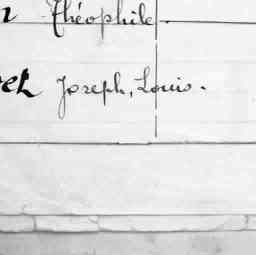 Théophile
Joseph, Louis.